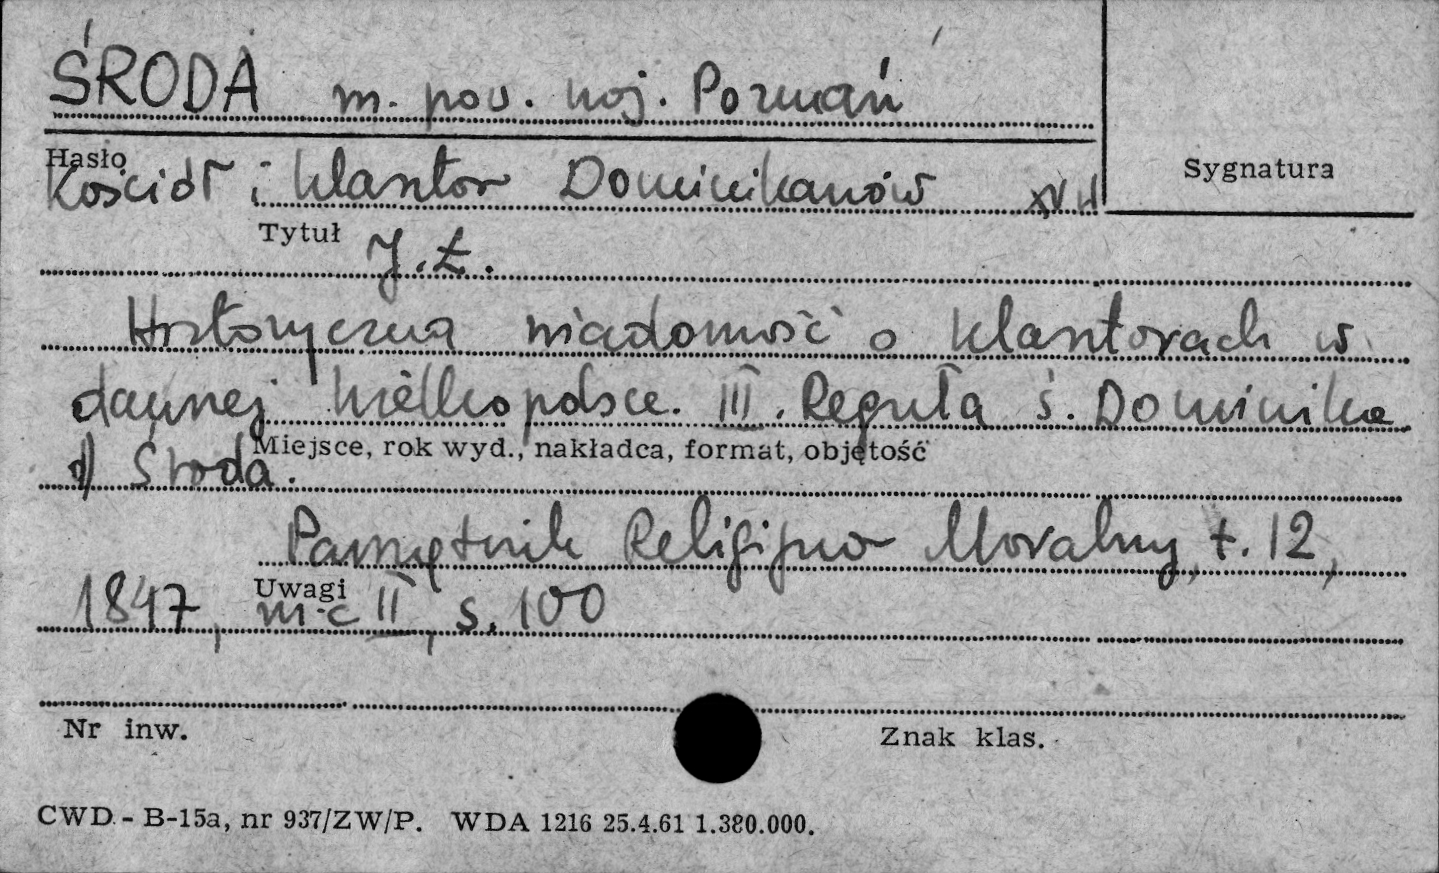 ŚRODA m. pow. woj. Poznań
Hasło
Kościół i klasztor Dominikanów XV w
Sygnatura
Tytuł
J. Ł.
Historyczna wiadomość o klasztorach w
dawnej Wielkopolsce. III. Reguła ś. Dominika
Miejsce, rok wyd., nakładca, format, objętość
d) Środa.
Pamiętnik Religijno Moralny, t. 12,
Uwagi
1847, m-c II, s. 100
Nr inw.
Znak klas.
CWD - B-15a, nr 937/ZW/P. WDA 1216 25.4.61 1.380.000.